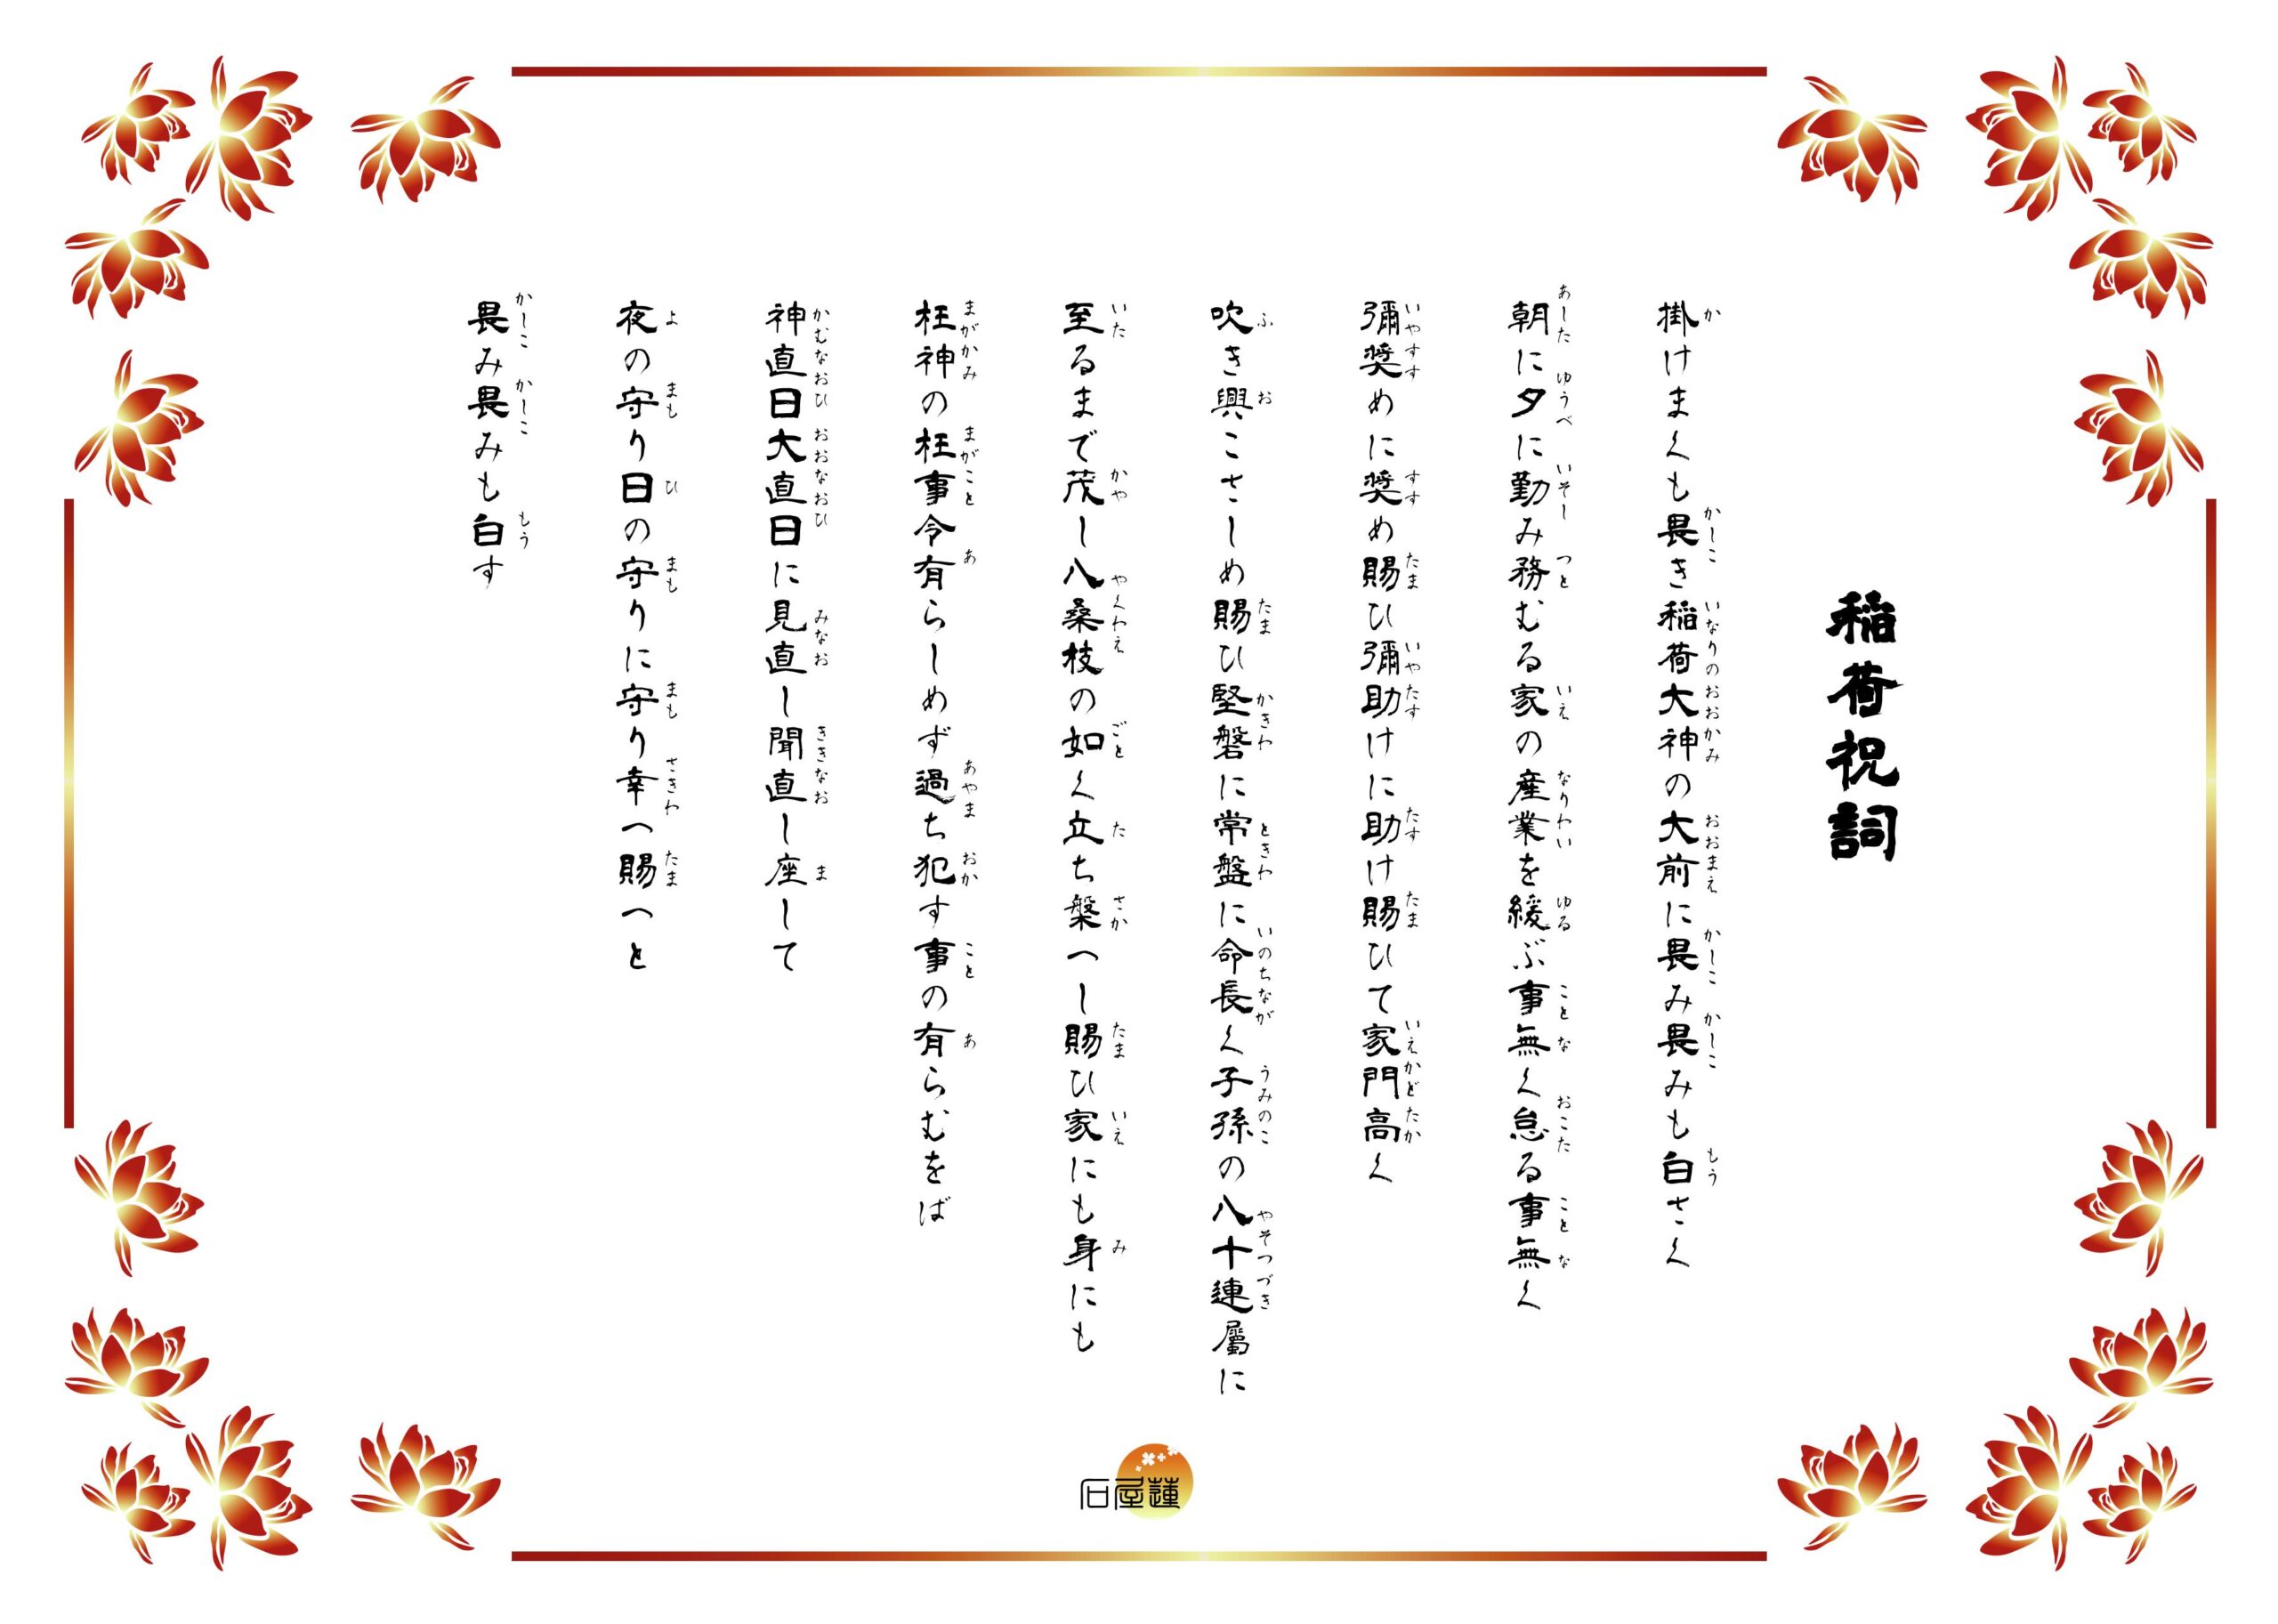 稲荷祝詞
掛けまくも畏き稲荷大神の大前に畏み畏みも白さく
朝に夕に勤み務むる家の産業を緩ぶ事無く怠る事無く
彌奨めに奨め賜ひ彌助けに助け賜ひて家門高く
吹き興こさしめ賜ひ堅磐に常盤に命長く子孫の八十連屬に
至るまで茂し八桑枝の如く立ち槃へし賜ひ家にも身にも
枉神の枉事令有らしめず過ち犯す事の有らむをば
神直日大直日に見直し聞直し座して
夜の守り日の守りに守り幸へ賜へと
畏み畏みも白す
石屋蓮